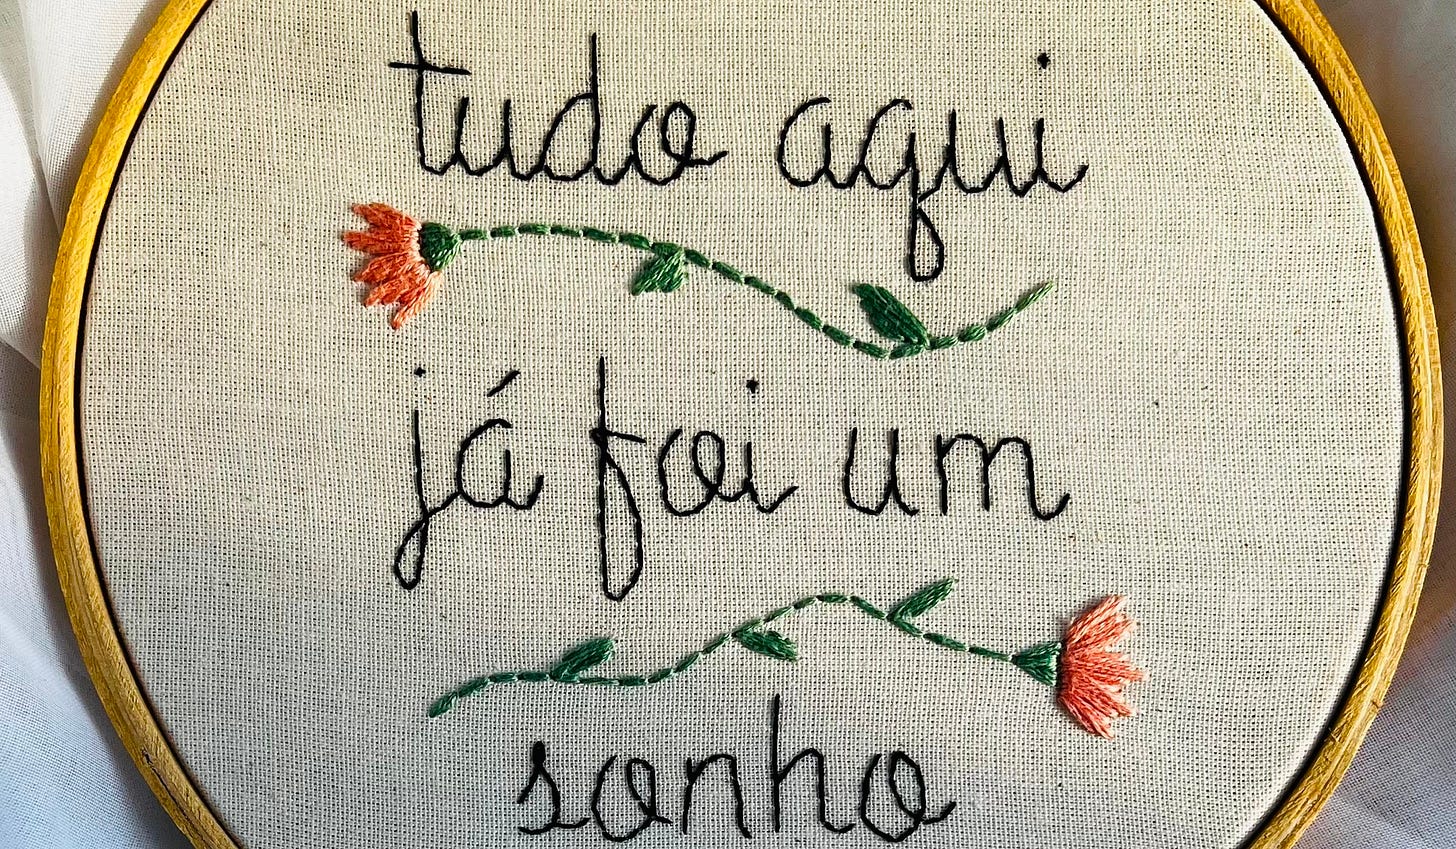 tudo aqui
já foi um
sonho